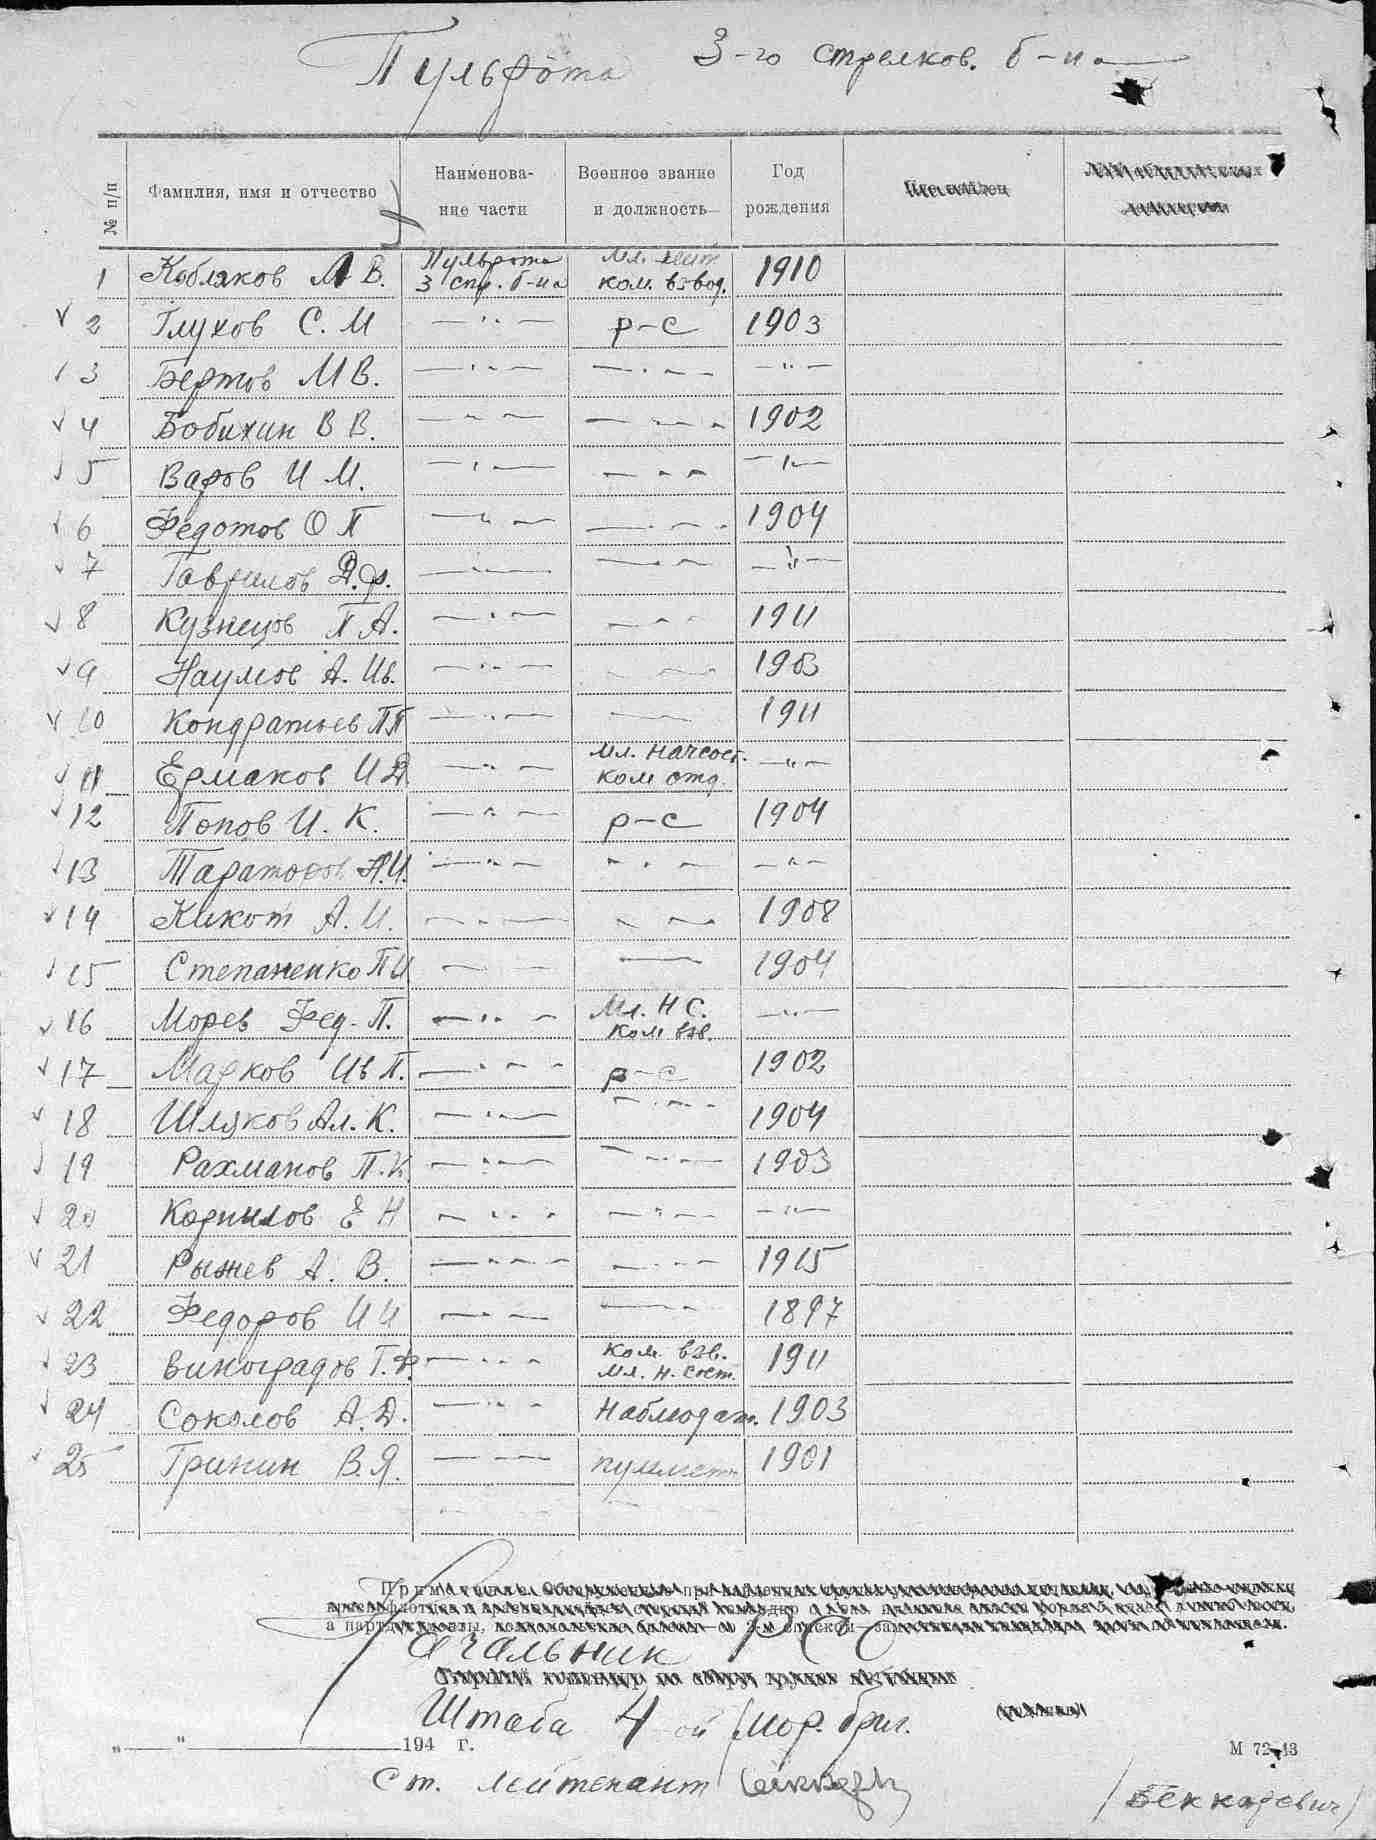 Пульрота 3-го стрелков. б-на
№ п/п Фамилия, имя и отчество Наименова-ние части Военное звание и должность Год рождения
1 Кобляков М В. Пульрота 3 стр. б-на Мл. лейт. ком. взвод. 1910
2 Глухов С. М —··— р-с 1903
3 Бертов М В. —··— —··— —··—
4 Бобихин В В. —··— —··— 1902
5 Варов И М. —··— —··— —··—
6 Федотов О П —··— —··— 1904
7 Гаврилов Д.Ф. —··— —··— —··—
8 Кузнецов П А. —··— —··— 1911
9 Наумов А. Ив. —··— —··— 1903
10 Кондратьев П П —··— —··— 1911
11 Ермаков И Д. —··— Мл. начсост. ком отд. —··—
12 Попов И. К. —··— р-с 1904
13 Тараторов А.И. —··— —··— —··—
14 Кикот А. И. —··— —··— 1908
15 Степаненко П И —··— —··— 1904
16 Морев Фед. П. —··— Мл. Н С. Ком взв. —··—
17 Марков Ив П. —··— р-с 1902
18 Шляков Ал. К. —··— —··— 1904
19 Рахманов П. К. —··— —··— 1903
20 Корнилов Е Н —··— —··— —··—
21 Рыжев А. В. —··— —··— 1915
22 Федоров И И —··— —··— 1897
23 Виноградов Г. Ф. —··— ком. взв. мл. н. сост. 1911
24 Соколов А. Д. —··— Наблюдат. 1903
25 Гринин В. Я. —··— пулеметч 1901
Начальник
Штаба 4 ой мор. бриг.
„ “ 194 г.
М 72-43
Ст. лейтенант /Беккаревич/